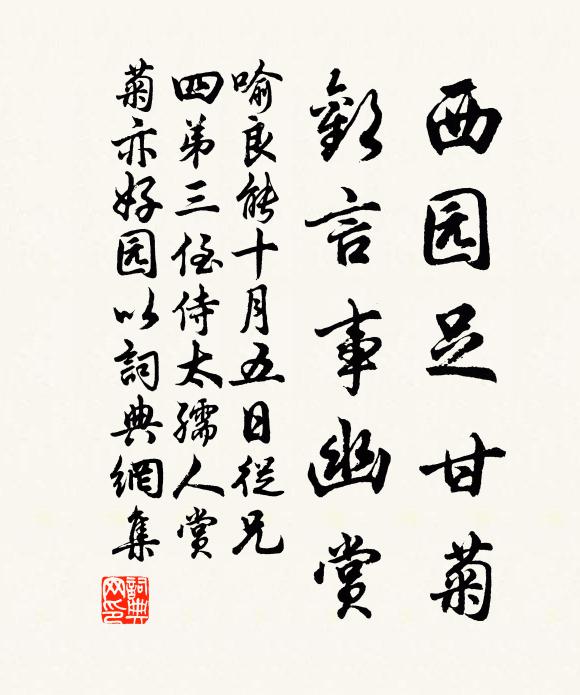 西园足甘菊
歡言事幽賞
喻良能十月五日從兄
四弟三侄侍太孺人賞
菊亦好园以詞典網集
詞典网印